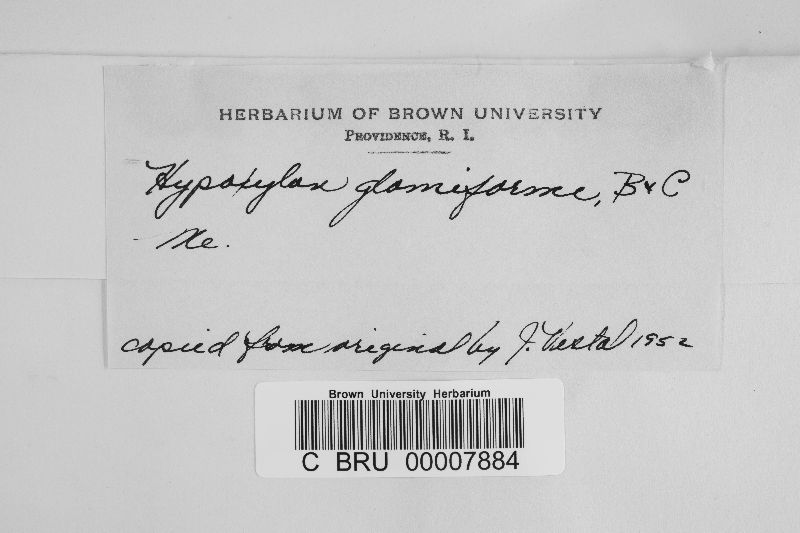 HERBARIUM OF BROWN UNIVERSITY
PROVIDENCE, R. I.
Hypoxylon glomiforme, B & C
Ne.
copied from original by J. Vestal 1952
Brown University Herbarium
C BRU 00007884